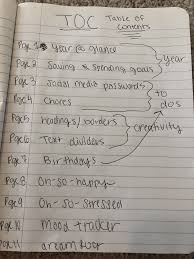 TOC Table of Contents
Page 1 Year @ glance
Page 2 Saving & spending goals
year
Page 3 Social media passwords
Page 4 Chores
to dos
Page 5 headings/boarders
Page 6 Text dividers
creativity
Page 7 Birthdays
Page 8 Oh-so-happy
Page 9 Oh-so-stressed
Page 10 Mood tracker
Page 11